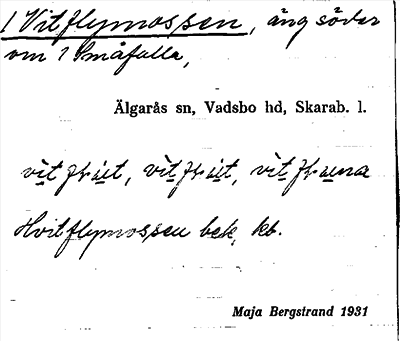 1 Vitflymossen, äng söder
om 1 Småfalla,
Älgarås sn, Vadsbo hd, Skarab. l.
Hvitflymossen bek, kb.
Maja Bergstrand 1931